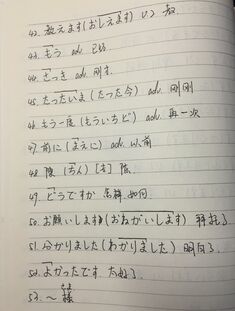 42. 教えます(おしえます) V2 教.
43. もう adv. 已经
44. さっき adv. 刚才.
45. たったいま(たった今) adv. 刚刚
46 もう一度(もういちど) adv. 再一次
47. 前に(まえに) adv. 以前
48 陳(ちん)[名] 陈
49. どうですか 怎样.如何.
50. お願いします(おねがいします) 拜托了
51. 分かりました(わかりました) 明白了.
52. よかったです. 太好了.
53. ~様
さま